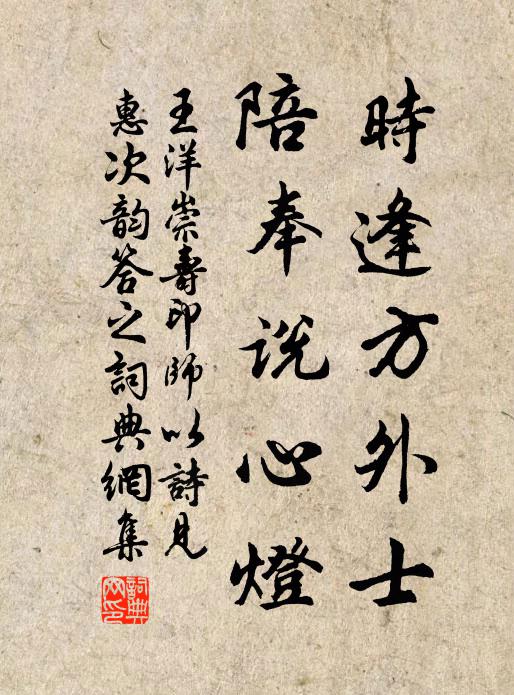 時逢方外士
陪奉説心燈
王洋崇壽印師以詩見
惠次韵答之詞典網集
詞典網印